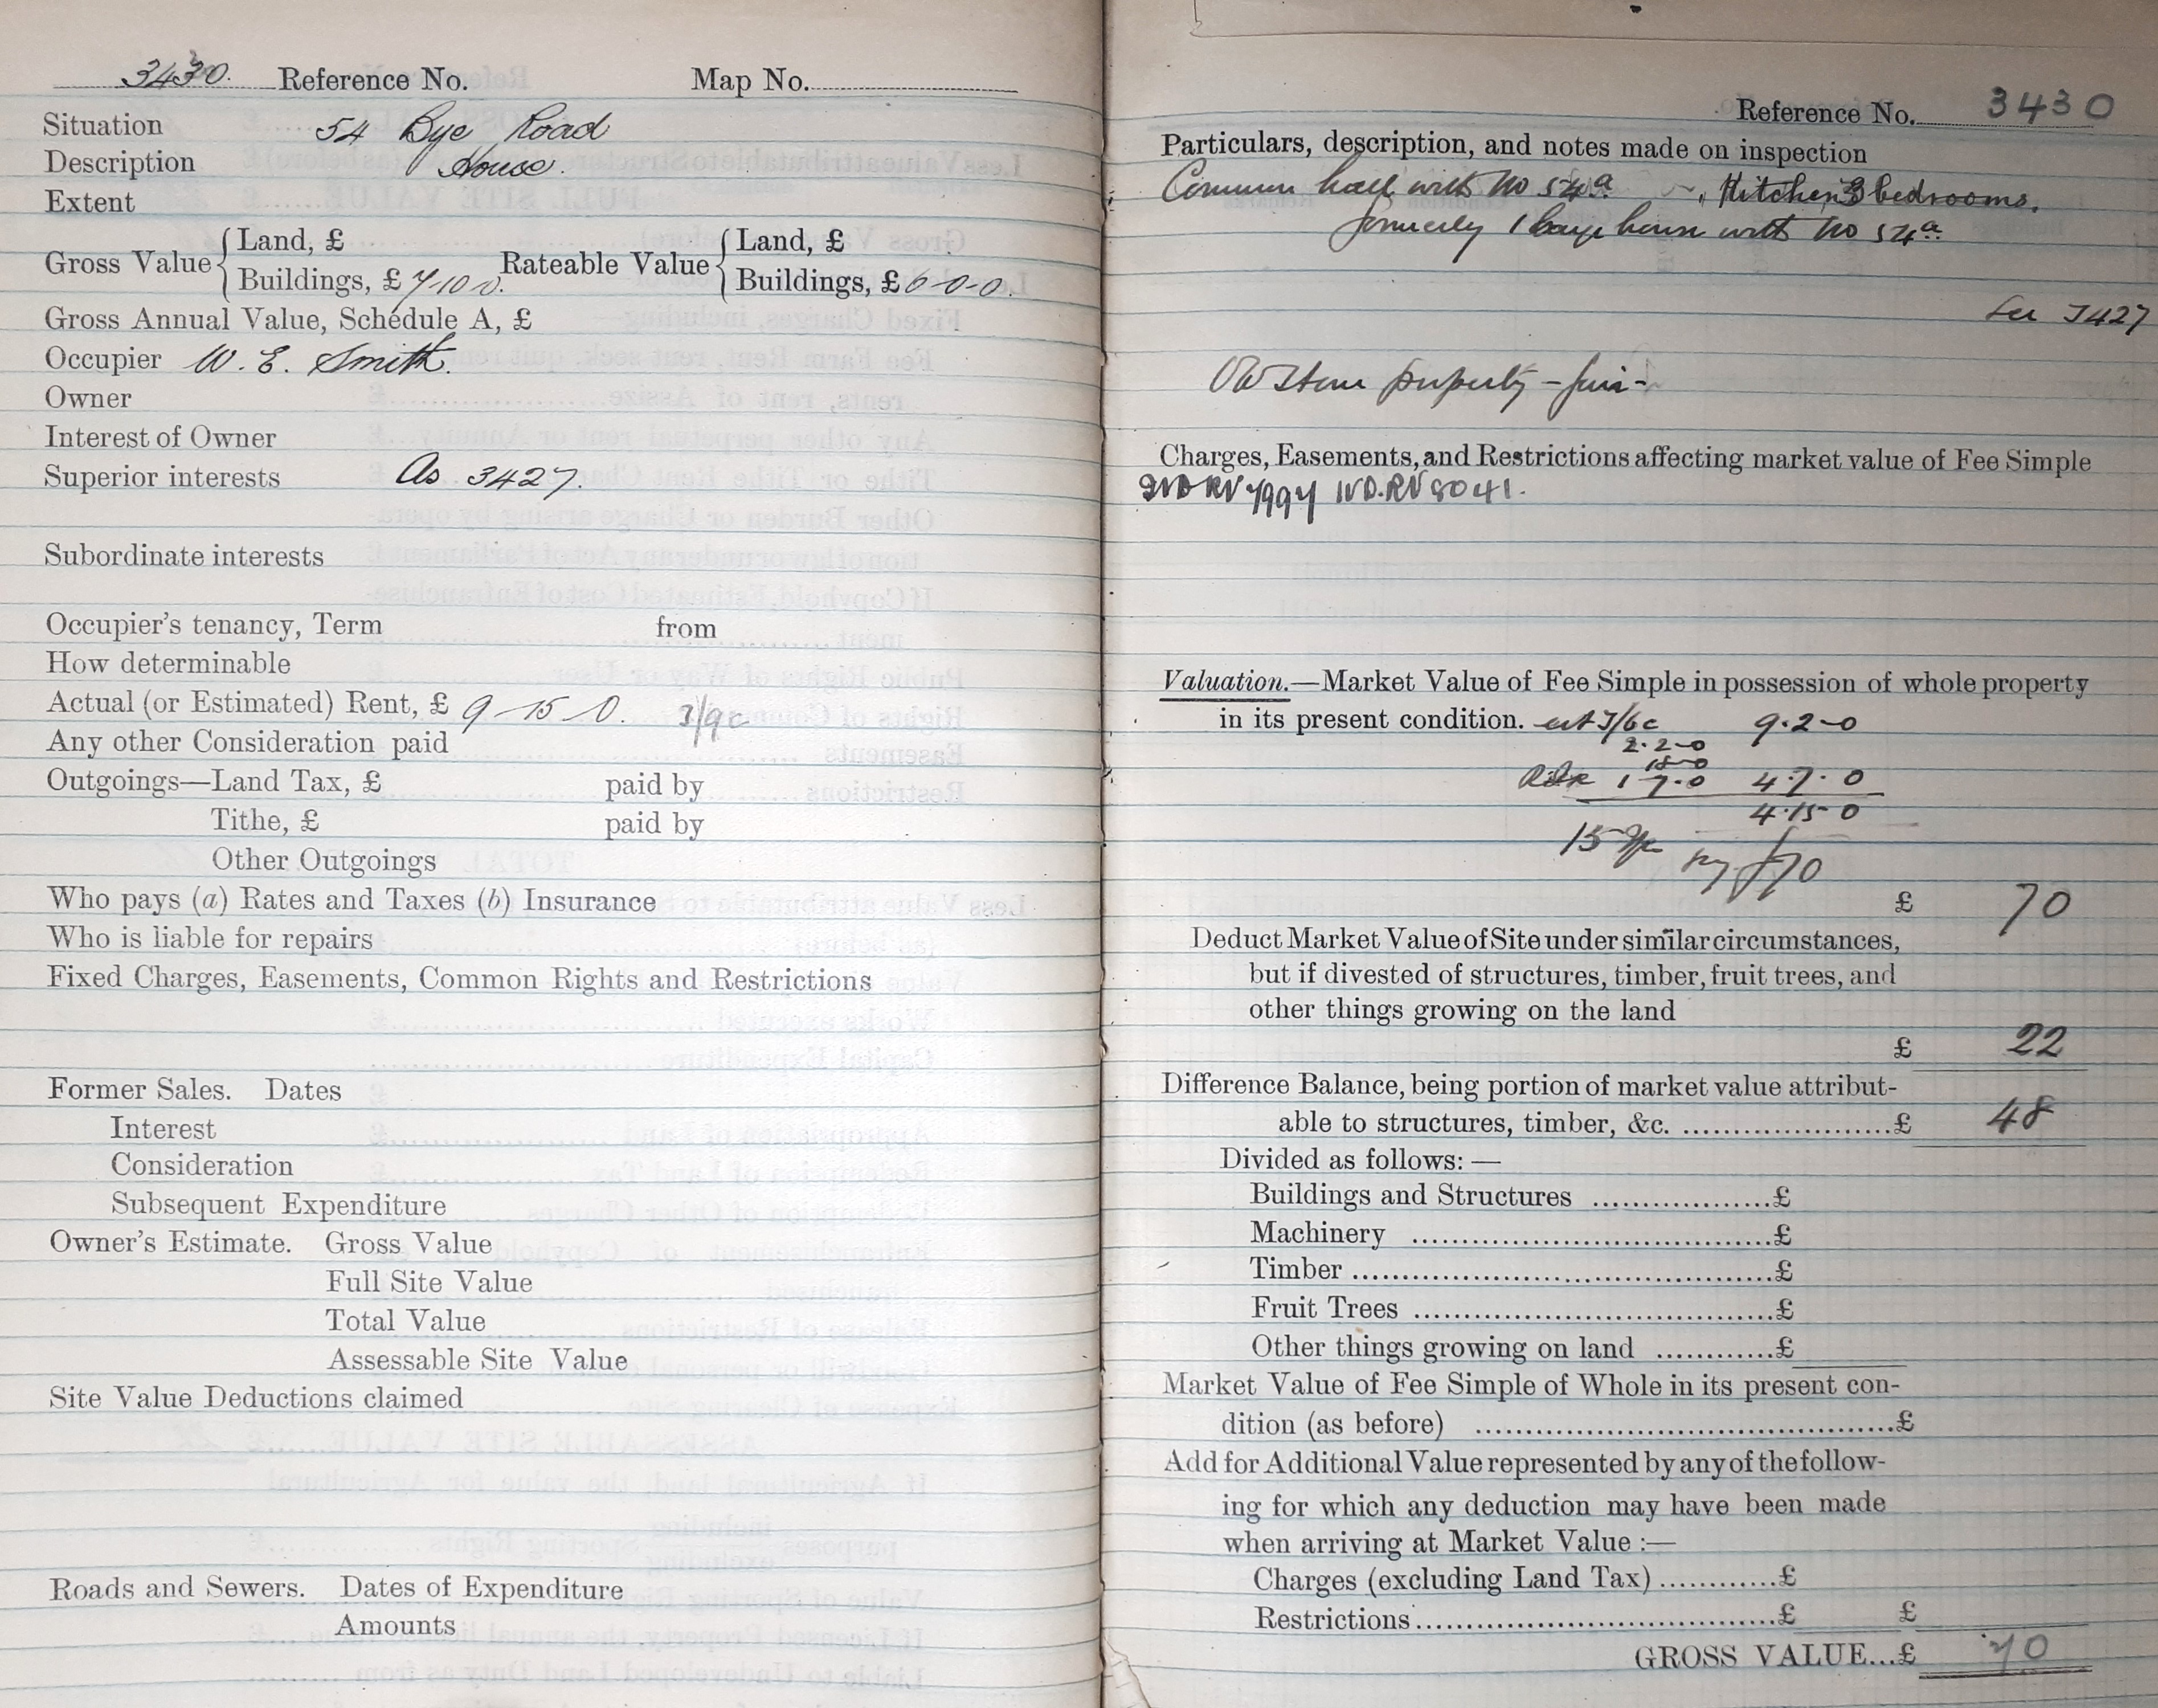 3430. Reference No. Map No.
Situation 54 Bye Road
Description House.
Extent
Gross Value { Land, £ Rateable Value { Land, £
Buildings, £ 7-10-0. Buildings, £ 6-0-0.
Gross Annual Value, Schedule A, £
Occupier W. E. Smith.
Owner
Interest of Owner
Superior interests As 3427.
Subordinate interests
Occupier's tenancy, Term from
How determinable
Actual (or Estimated) Rent, £ 9-15-0. 3/9c
Any other Consideration paid
Outgoings—Land Tax, £ paid by
Tithe, £ paid by
Other Outgoings
Who pays (a) Rates and Taxes (b) Insurance
Who is liable for repairs
Fixed Charges, Easements, Common Rights and Restrictions
Former Sales. Dates
Interest
Consideration
Subsequent Expenditure
Owner's Estimate. Gross Value
Full Site Value
Total Value
Assessable Site Value
Site Value Deductions claimed
Roads and Sewers. Dates of Expenditure
Amounts
Reference No. 3430
Particulars, description, and notes made on inspection
Common hall with No 54a, Kitchen, 3 bedrooms.
formerly 1 large house with No 54a
See 3427
Old Stone property - fair -
Charges, Easements, and Restrictions affecting market value of Fee Simple
IVD.RV 8041.
Valuation.—Market Value of Fee Simple in possession of whole property
in its present condition. est 3/6c 9.2-0
2.2-0
15-0
1 7.0 4.7.0
4.15 0
15 yp say £70
£ 70
Deduct Market Value of Site under similar circumstances,
but if divested of structures, timber, fruit trees, and
other things growing on the land
£ 22
Difference Balance, being portion of market value attribut-
able to structures, timber, &c. ....................£ 48
Divided as follows: —
Buildings and Structures .................£
Machinery ....................................£
Timber ..........................................£
Fruit Trees ....................................£
Other things growing on land ............£
Market Value of Fee Simple of Whole in its present con-
dition (as before) ..........................................£
Add for Additional Value represented by any of the follow-
ing for which any deduction may have been made
when arriving at Market Value :—
Charges (excluding Land Tax) ............£
Restrictions....................................£ £
GROSS VALUE...£ 70